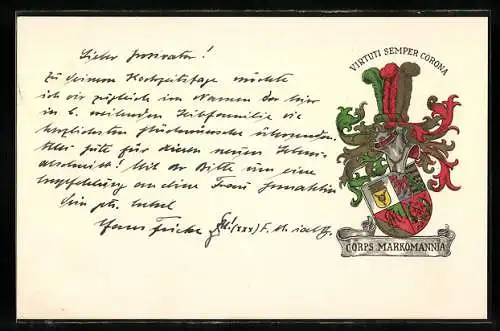 VIRTUTI SEMPER CORONA
Lieber
Zu Deinem Hochzeitstage möchte
ich Dir zugleich im Namen der hier
in
herzlichsten Glückwünsche übersenden.
Alles Gute für diesen neuen Lebens-
abschnitt! Mit der Bitte um eine
Empfehlung an Deine Frau Gemahlin
Dein
Hans Fricke (xxx) F.
CORPS MARKOMANNIA